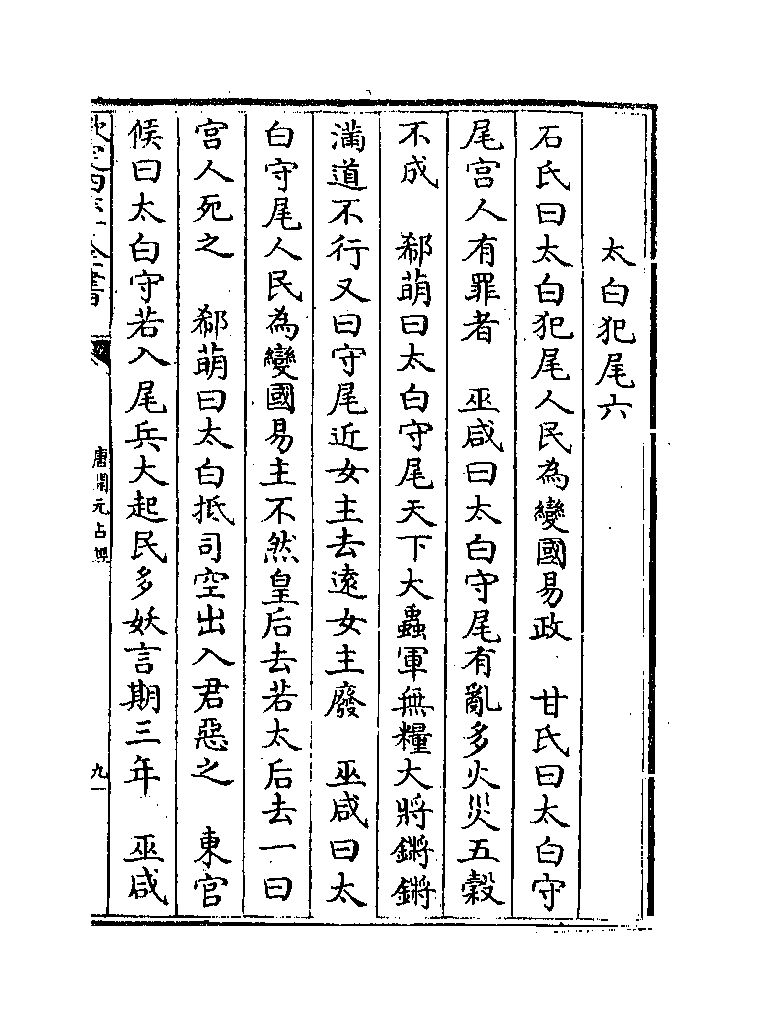 太白犯尾六
石氏曰太白犯尾人民為變國易政　甘氏曰太白守
尾宮人有罪者　巫咸曰太白守尾有亂多火災五穀
不成　郗萌曰太白守尾天下大蟲軍無糧大將鏘鏘
滿道不行又曰守尾近女主去遠女主廢　巫咸曰太
白守尾人民為變國易主不然皇后去若太后去一曰
宮人死之　郗萌曰太白抵司空出入君惡之　東官
候曰太白守若入尾兵大起民多妖言期三年　巫咸
欽定四庫全書
唐開元占經
九